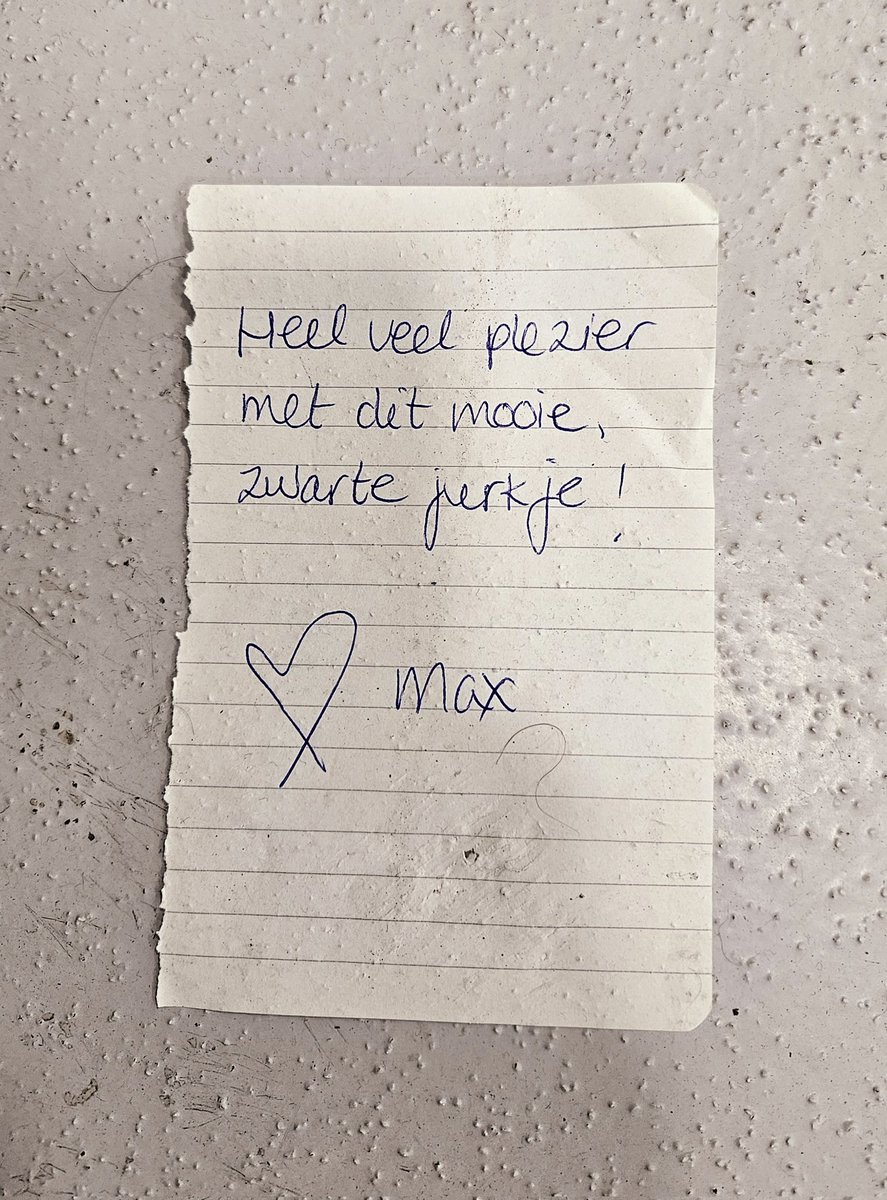 Heel veel plezier
met dit mooie,
zwarte jurkje!
Max